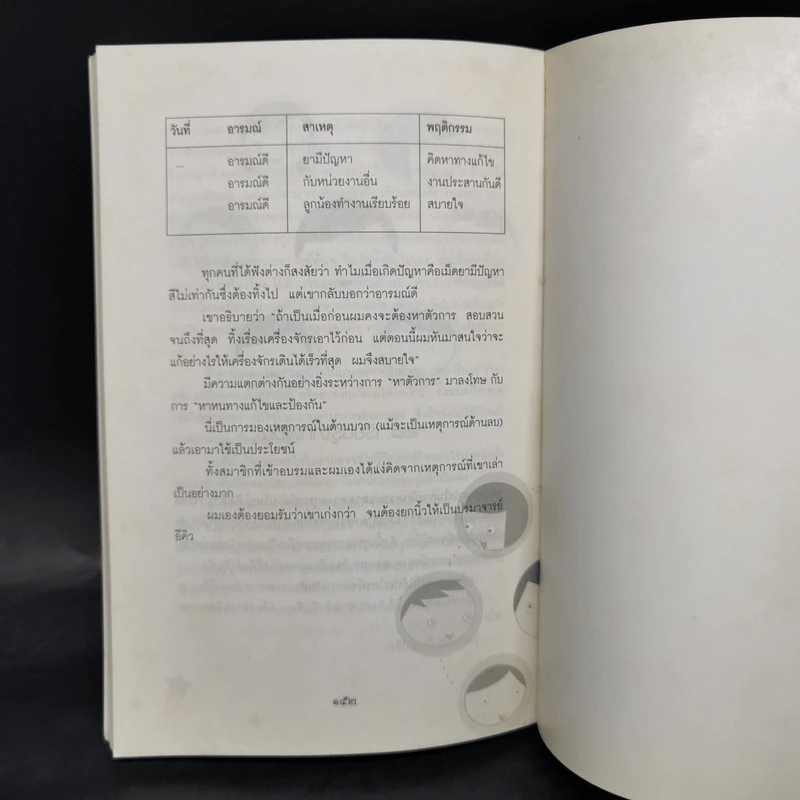 วันที่ อารมณ์ สาเหตุ พฤติกรรม
... อารมณ์ดี ยามีปัญหา คิดหาทางแก้ไข
อารมณ์ดี กับหน่วยงานอื่น งานประสานกันดี
อารมณ์ดี ลูกน้องทำงานเรียบร้อย สบายใจ
ทุกคนที่ได้ฟังต่างก็สงสัยว่า ทำไมเมื่อเกิดปัญหาคือเม็ดยามีปัญหา
สีไม่เท่ากันซึ่งต้องทิ้งไป แต่เขากลับบอกว่าอารมณ์ดี
เขาอธิบายว่า "ถ้าเป็นเมื่อก่อนผมคงจะต้องหาตัวการ สอบสวน
จนถึงที่สุด ทิ้งเรื่องเครื่องจักรเอาไว้ก่อน แต่ตอนนี้ผมหันมาสนใจว่าจะ
แก้อย่างไรให้เครื่องจักรเดินได้เร็วที่สุด ผมจึงสบายใจ"
มีความแตกต่างกันอย่างยิ่งระหว่างการ "หาตัวการ" มาลงโทษ กับ
การ "หาหนทางแก้ไขและป้องกัน"
นี่เป็นการมองเหตุการณ์ในด้านบวก (แม้จะเป็นเหตุการณ์ด้านลบ)
แล้วเอามาใช้เป็นประโยชน์
ทั้งสมาชิกที่เข้าอบรมและผมเองได้แง่คิดจากเหตุการณ์ที่เขาเล่า
เป็นอย่างมาก
ผมเองต้องยอมรับว่าเขาเก่งกว่า จนต้องยกนิ้วให้เป็นปรมาจารย์
อีคิว
๑๕๒